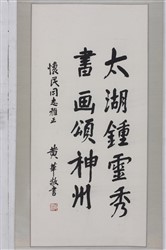 太湖鍾靈秀
書画頌神州
懷民同志雅正
黄華敬書